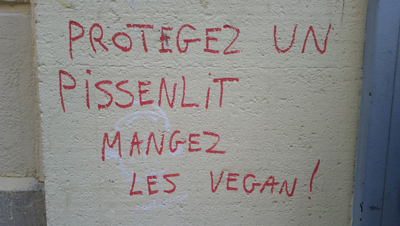 PROTEGEZ UN
PISSENLIT
MANGEZ
LES VEGAN!